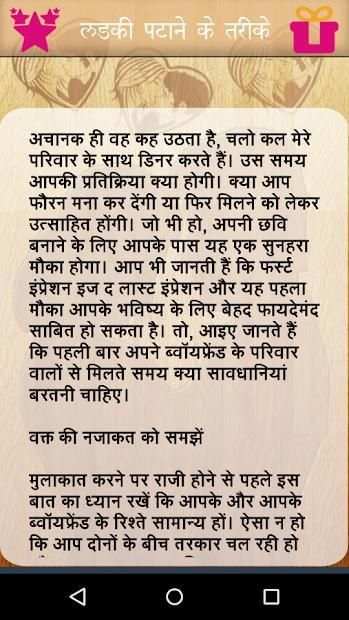 लडकी पटाने के तरीके
अचानक ही वह कह उठता है, चलो कल मेरे
परिवार के साथ डिनर करते हैं। उस समय
आपकी प्रतिक्रिया क्या होगी। क्या आप
फौरन मना कर देंगी या फिर मिलने को लेकर
उत्साहित होंगी। जो भी हो, अपनी छवि
बनाने के लिए आपके पास यह एक सुनहरा
मौका होगा। आप भी जानती हैं कि फर्स्ट
इंप्रेशन इज द लास्ट इंप्रेशन और यह पहला
मौका आपके भविष्य के लिए बेहद फायदेमंद
साबित हो सकता है। तो, आइए जानते हैं
कि पहली बार अपने ब्वॉयफ्रेंड के परिवार
वालों से मिलते समय क्या सावधानियां
बरतनी चाहिए।
वक्त की नजाकत को समझें
मुलाकात करने पर राजी होने से पहले इस
बात का ध्यान रखें कि आपके और आपके
ब्वॉयफ्रेंड के रिश्ते सामान्य हों। ऐसा न हो
कि आप दोनों के बीच तरकार चल रही हो